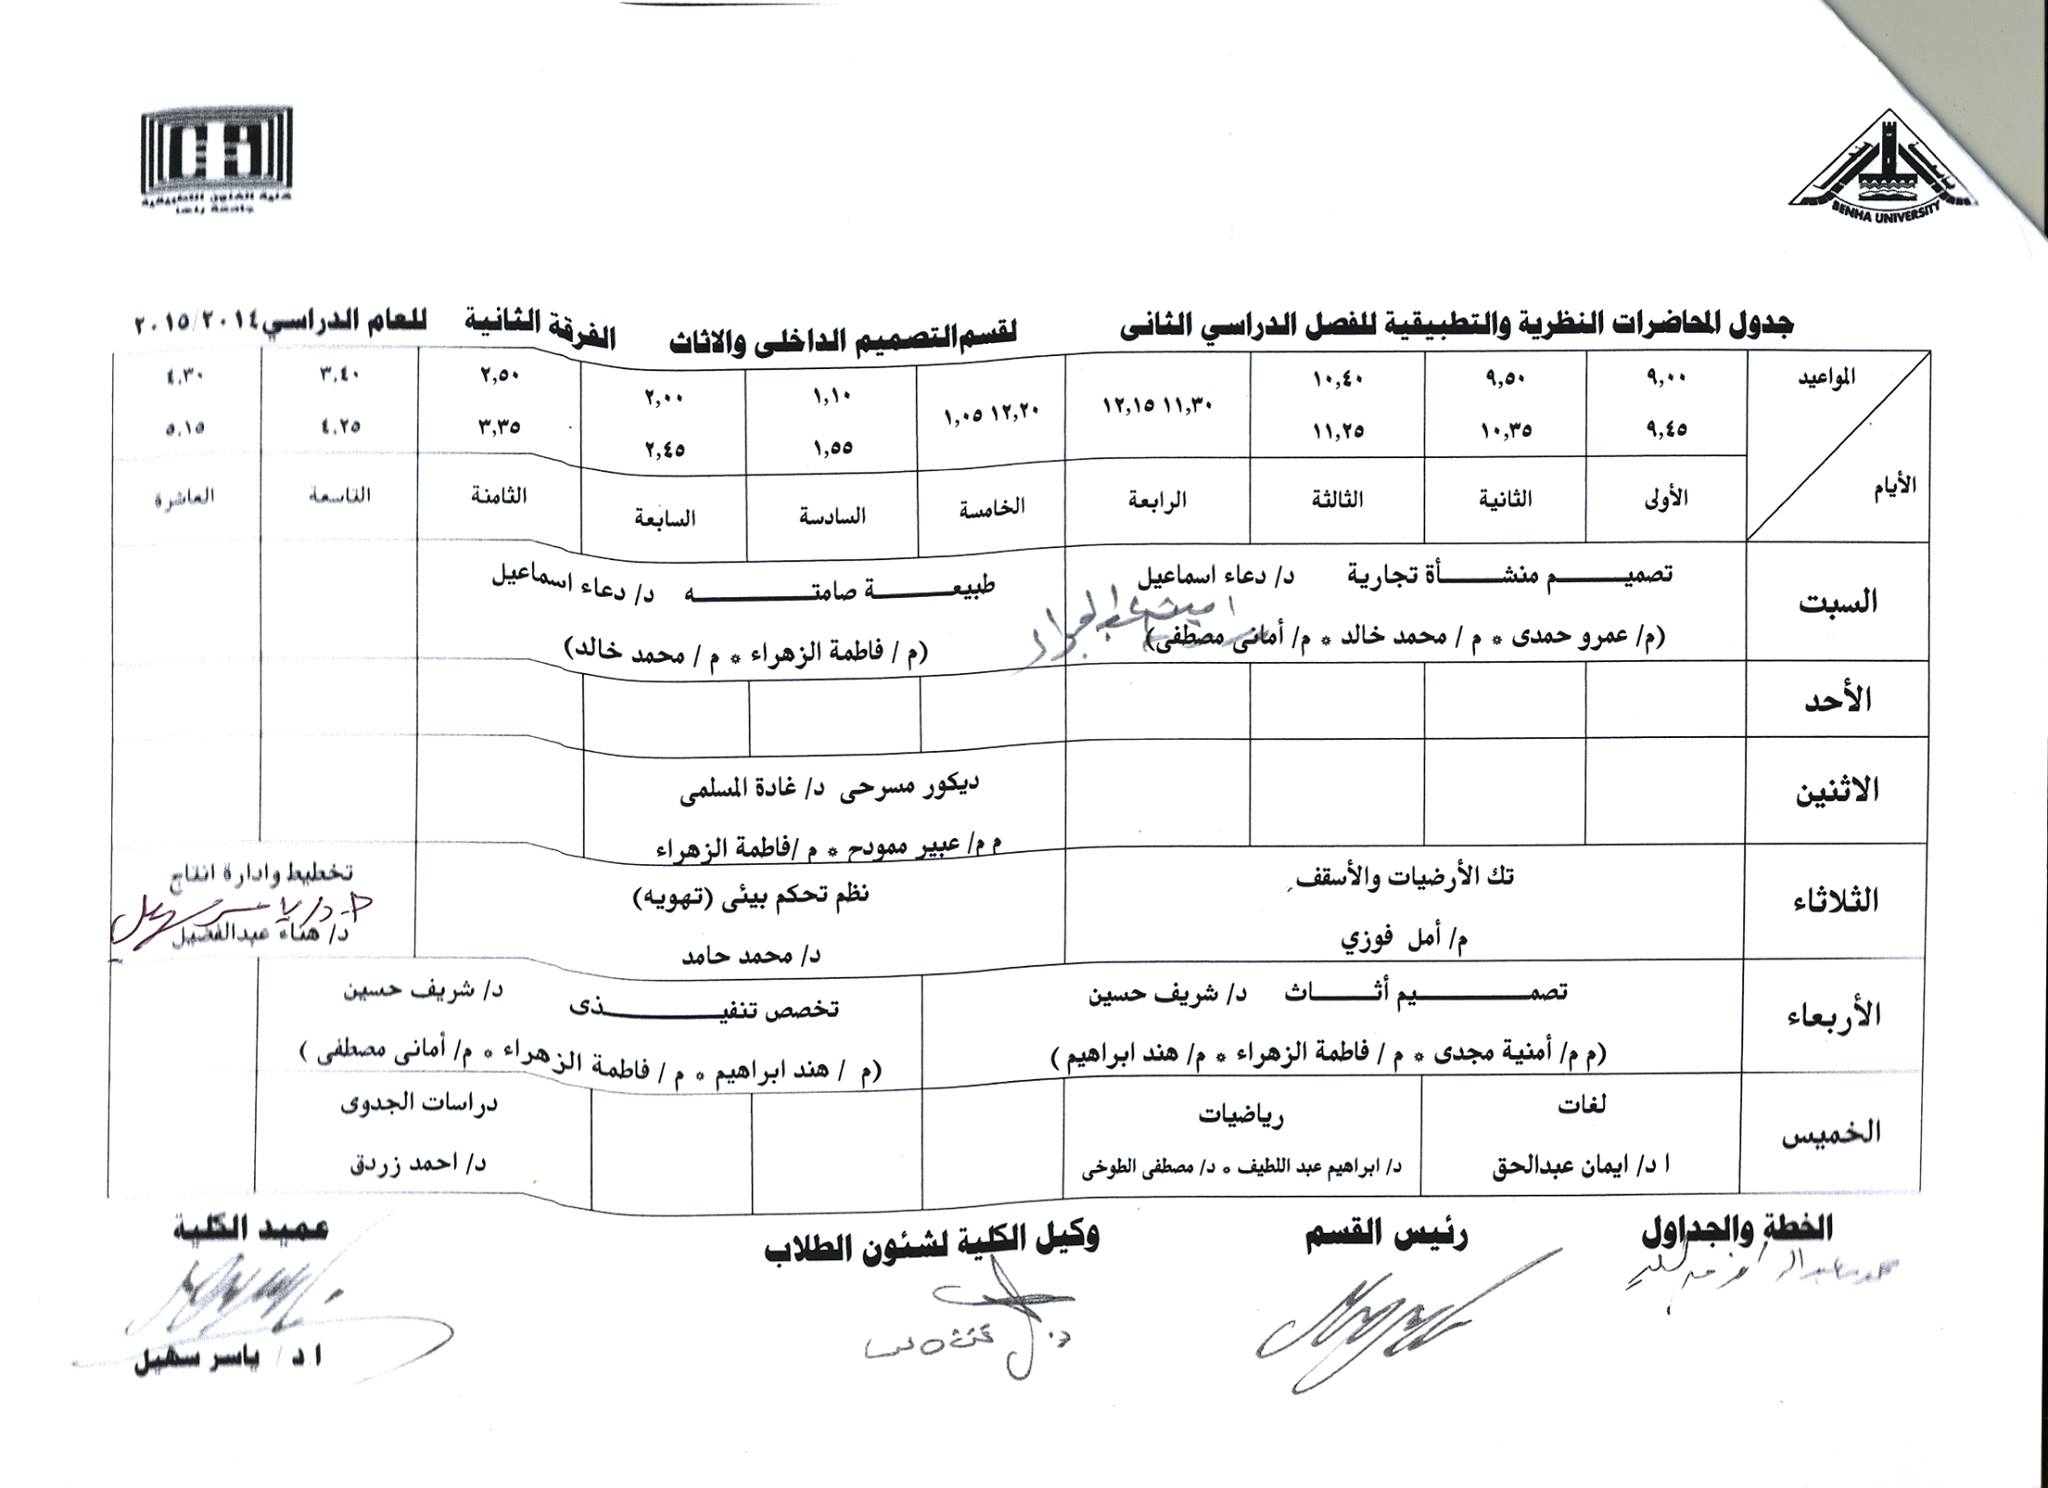 كلية الفنون التطبيقية
جامعة بنها
BENHA UNIVERSITY
جدول المحاضرات النظرية والتطبيقية للفصل الدراسي الثانى لقسم التصميم الداخلى والاثاث الفرقة الثانية للعام الدراسي ٢٠١٥/٢٠١٤
المواعيد
الأيام
٩,٠٠ ٩,٥٠ ١٠,٤٠ ١١,٣٠ ١٢,١٥ ١٢,٢٠ ١,٠٥ ١,١٠ ٢,٠٠ ٢,٥٠ ٣,٤٠ ٤,٣٠
٩,٤٥ ١٠,٣٥ ١١,٢٥ ١,٥٥ ٢,٤٥ ٣,٣٥ ٤,٢٥ ٥,١٥
الأولى الثانية الثالثة الرابعة الخامسة السادسة السابعة الثامنة التاسعة العاشرة
السبت
تصميم منشأة تجارية د/ دعاء اسماعيل
(م/ عمرو حمدى * م / محمد خالد * م/ أمانى مصطفى)
طبيعة صامته د/ دعاء اسماعيل
(م / فاطمة الزهراء * م / محمد خالد)
الأحد
الاثنين
ديكور مسرحى د/ غادة المسلمى
م م/ عبير ممودح * م /فاطمة الزهراء
الثلاثاء
تك الأرضيات والأسقف
م/ أمل فوزي
نظم تحكم بيئى (تهويه)
د/ محمد حامد
تخطيط وادارة انتاج
د/ هناء عبدالفضيل
الأربعاء
تصميم أثاث د/ شريف حسين
(م م/ أمنية مجدى * م / فاطمة الزهراء * م/ هند ابراهيم )
تخصص تنفيذى د/ شريف حسين
(م / هند ابراهيم * م / فاطمة الزهراء * م/ أمانى مصطفى )
الخميس
لغات
ا د/ ايمان عبدالحق
رياضيات
د/ ابراهيم عبد اللطيف * د/ مصطفى الطوخى
دراسات الجدوى
د/ احمد زردق
الخطة والجداول رئيس القسم وكيل الكلية لشئون الطلاب عميد الكلية
ا د/ ياسر سهيل